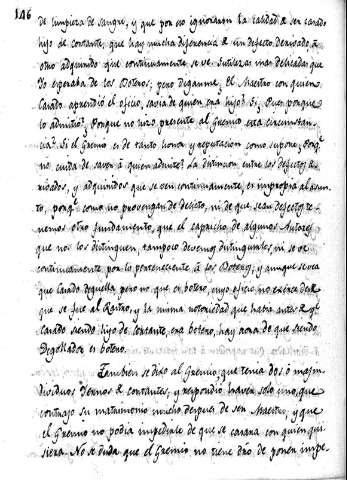 146
de limpieza de sangre, y que por eso ignoraron la calidad de ser Casado
hijo de cortante, que hay mucha diferencia de un defecto derivado, à
otro adquirido que continuamente se ve. Sutilezas mas delicadas que
Yo esperaba de los Boteros; pero diganme, El Maestro con quien
Casado aprendió el oficio, savia de quien era hijo? Si, Pues porque
lo admitio? Porque no hizo presente al Gremio esta circunstan-
cia? Si el Gremio es de tanto honor y reputacion como supone, Porqe.
no cuida de saver à quien admite? La distincion entre los defectos de-
rivados, y adquiridos que se ven continuamente, es impropia al asun-
to, porqe. como no provengan de delito, ni de que sean defectos te-
nemos otro fundamento, que el capricho de algunos Autores
que nos los distinguen, tampoco devemos distinguirles, ni se ve
continuamente por lo perteneciente à los Boteros; y aunque se vea
que Casado deguella pero no que es botero, cuyo oficio no exerce desde
que se fue al Rastro, y la misma notoriedad que havia antes de qe.
Casado siendo hijo de Cortante, era botero, hay aora de que siendo
Degollador es botero.
Tambien se dixo al Gremio, que tenia dos ò mas in-
dividuos Yernos de Cortantes, y respondio haver solo uno, que
contrajo su matrimonio mucho despues de ser Maestro, y que
el Gremio no podia impedirle de que se casara con quien qui-
siera. No se duda que el Gremio no tiene dro. de poner impe-